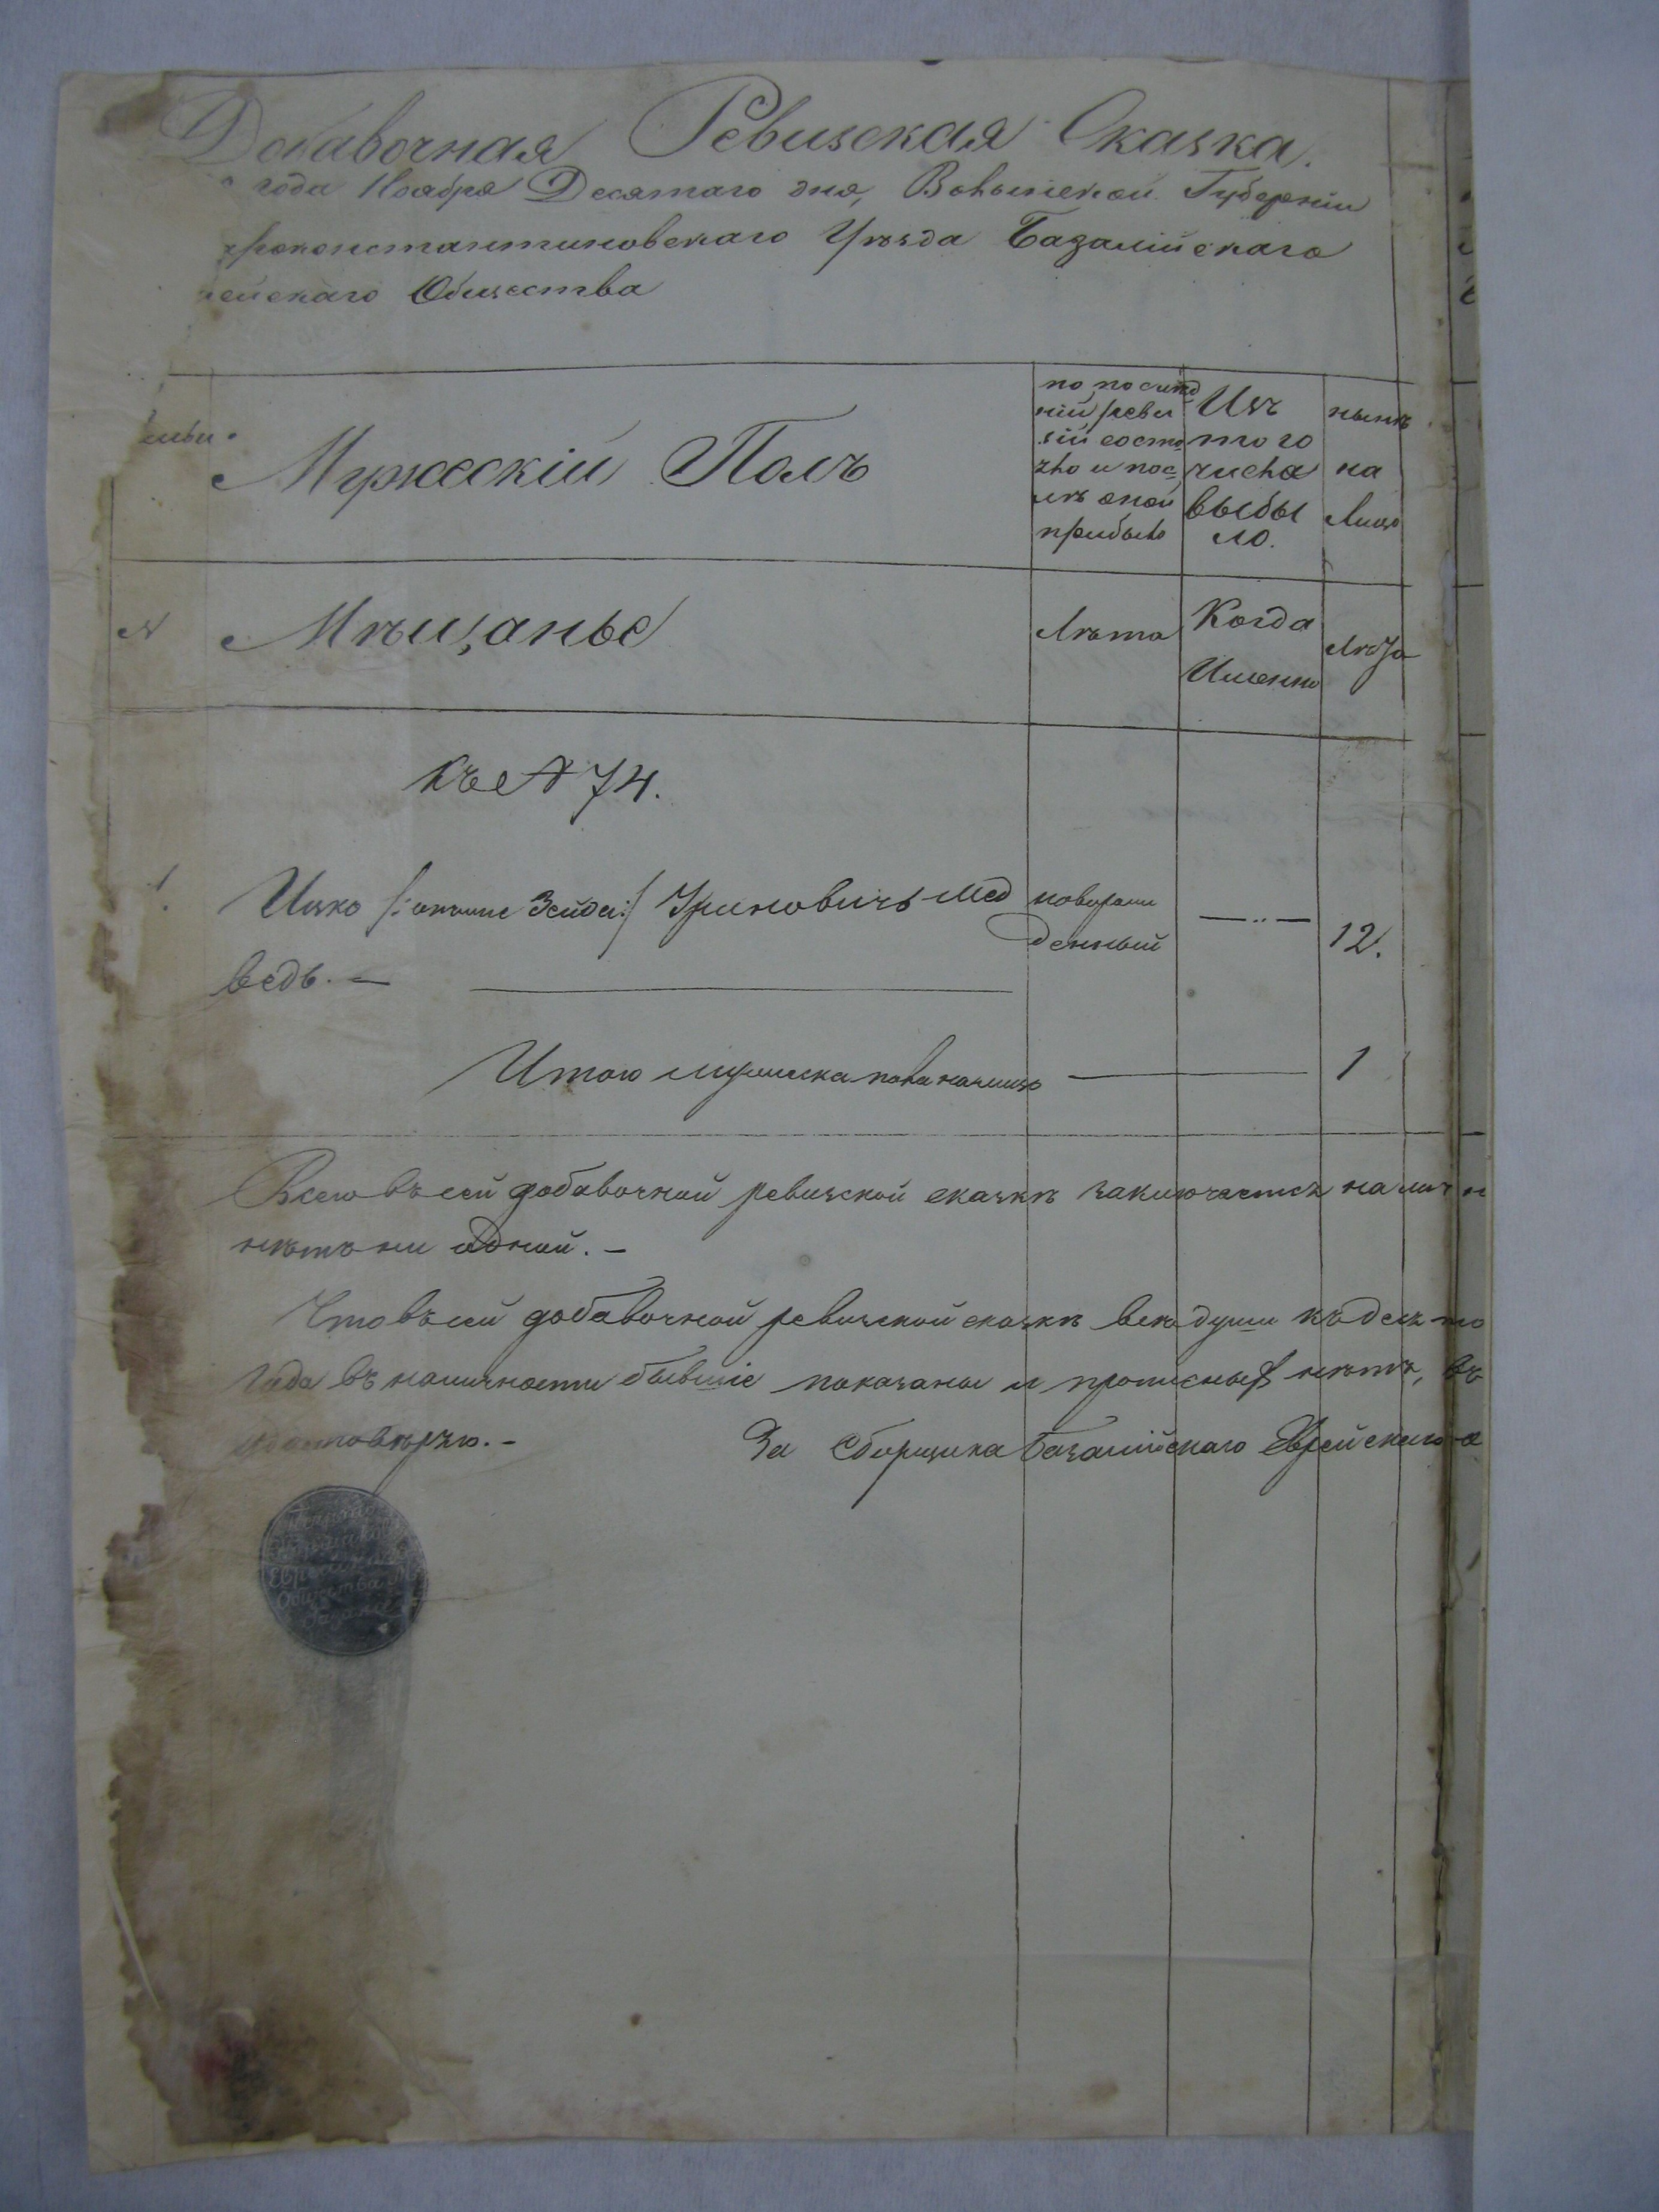 Добавочная Ревизская Сказка.
года Ноября Десятаго дня, Волынской Губерніи
роконстантиновскаго Уѣзда Базалійскаго
ейскаго Общества
Мужескій Полъ
по послѣд
ній реви
зіи состо
яло и пос
лѣ оной
прибыло
Изъ
того
числа
выбы
ло.
нынѣ
на
лицо
№
Мѣщанье
Лѣта
Когда
Именно
Лѣта
къ № 74.
1.
Ицко /: онъ же Зейда :/ Уриновичъ Мед
ведь. —
новорож
денный
— „ —
12.
Итого мужеска пола налицо
1
Всего въ сей добавочной ревизской сказкѣ заключается
нѣтъ ни одной. —
Что въ сей добавочной ревизской сказкѣ всѣ души къ
года въ наличности бывшіе показаны и прописныхъ нѣтъ, въ
удостовѣряю. —
За Сборщика Базалійскаго Еврейскаго
Еврейскаго
Общества М.